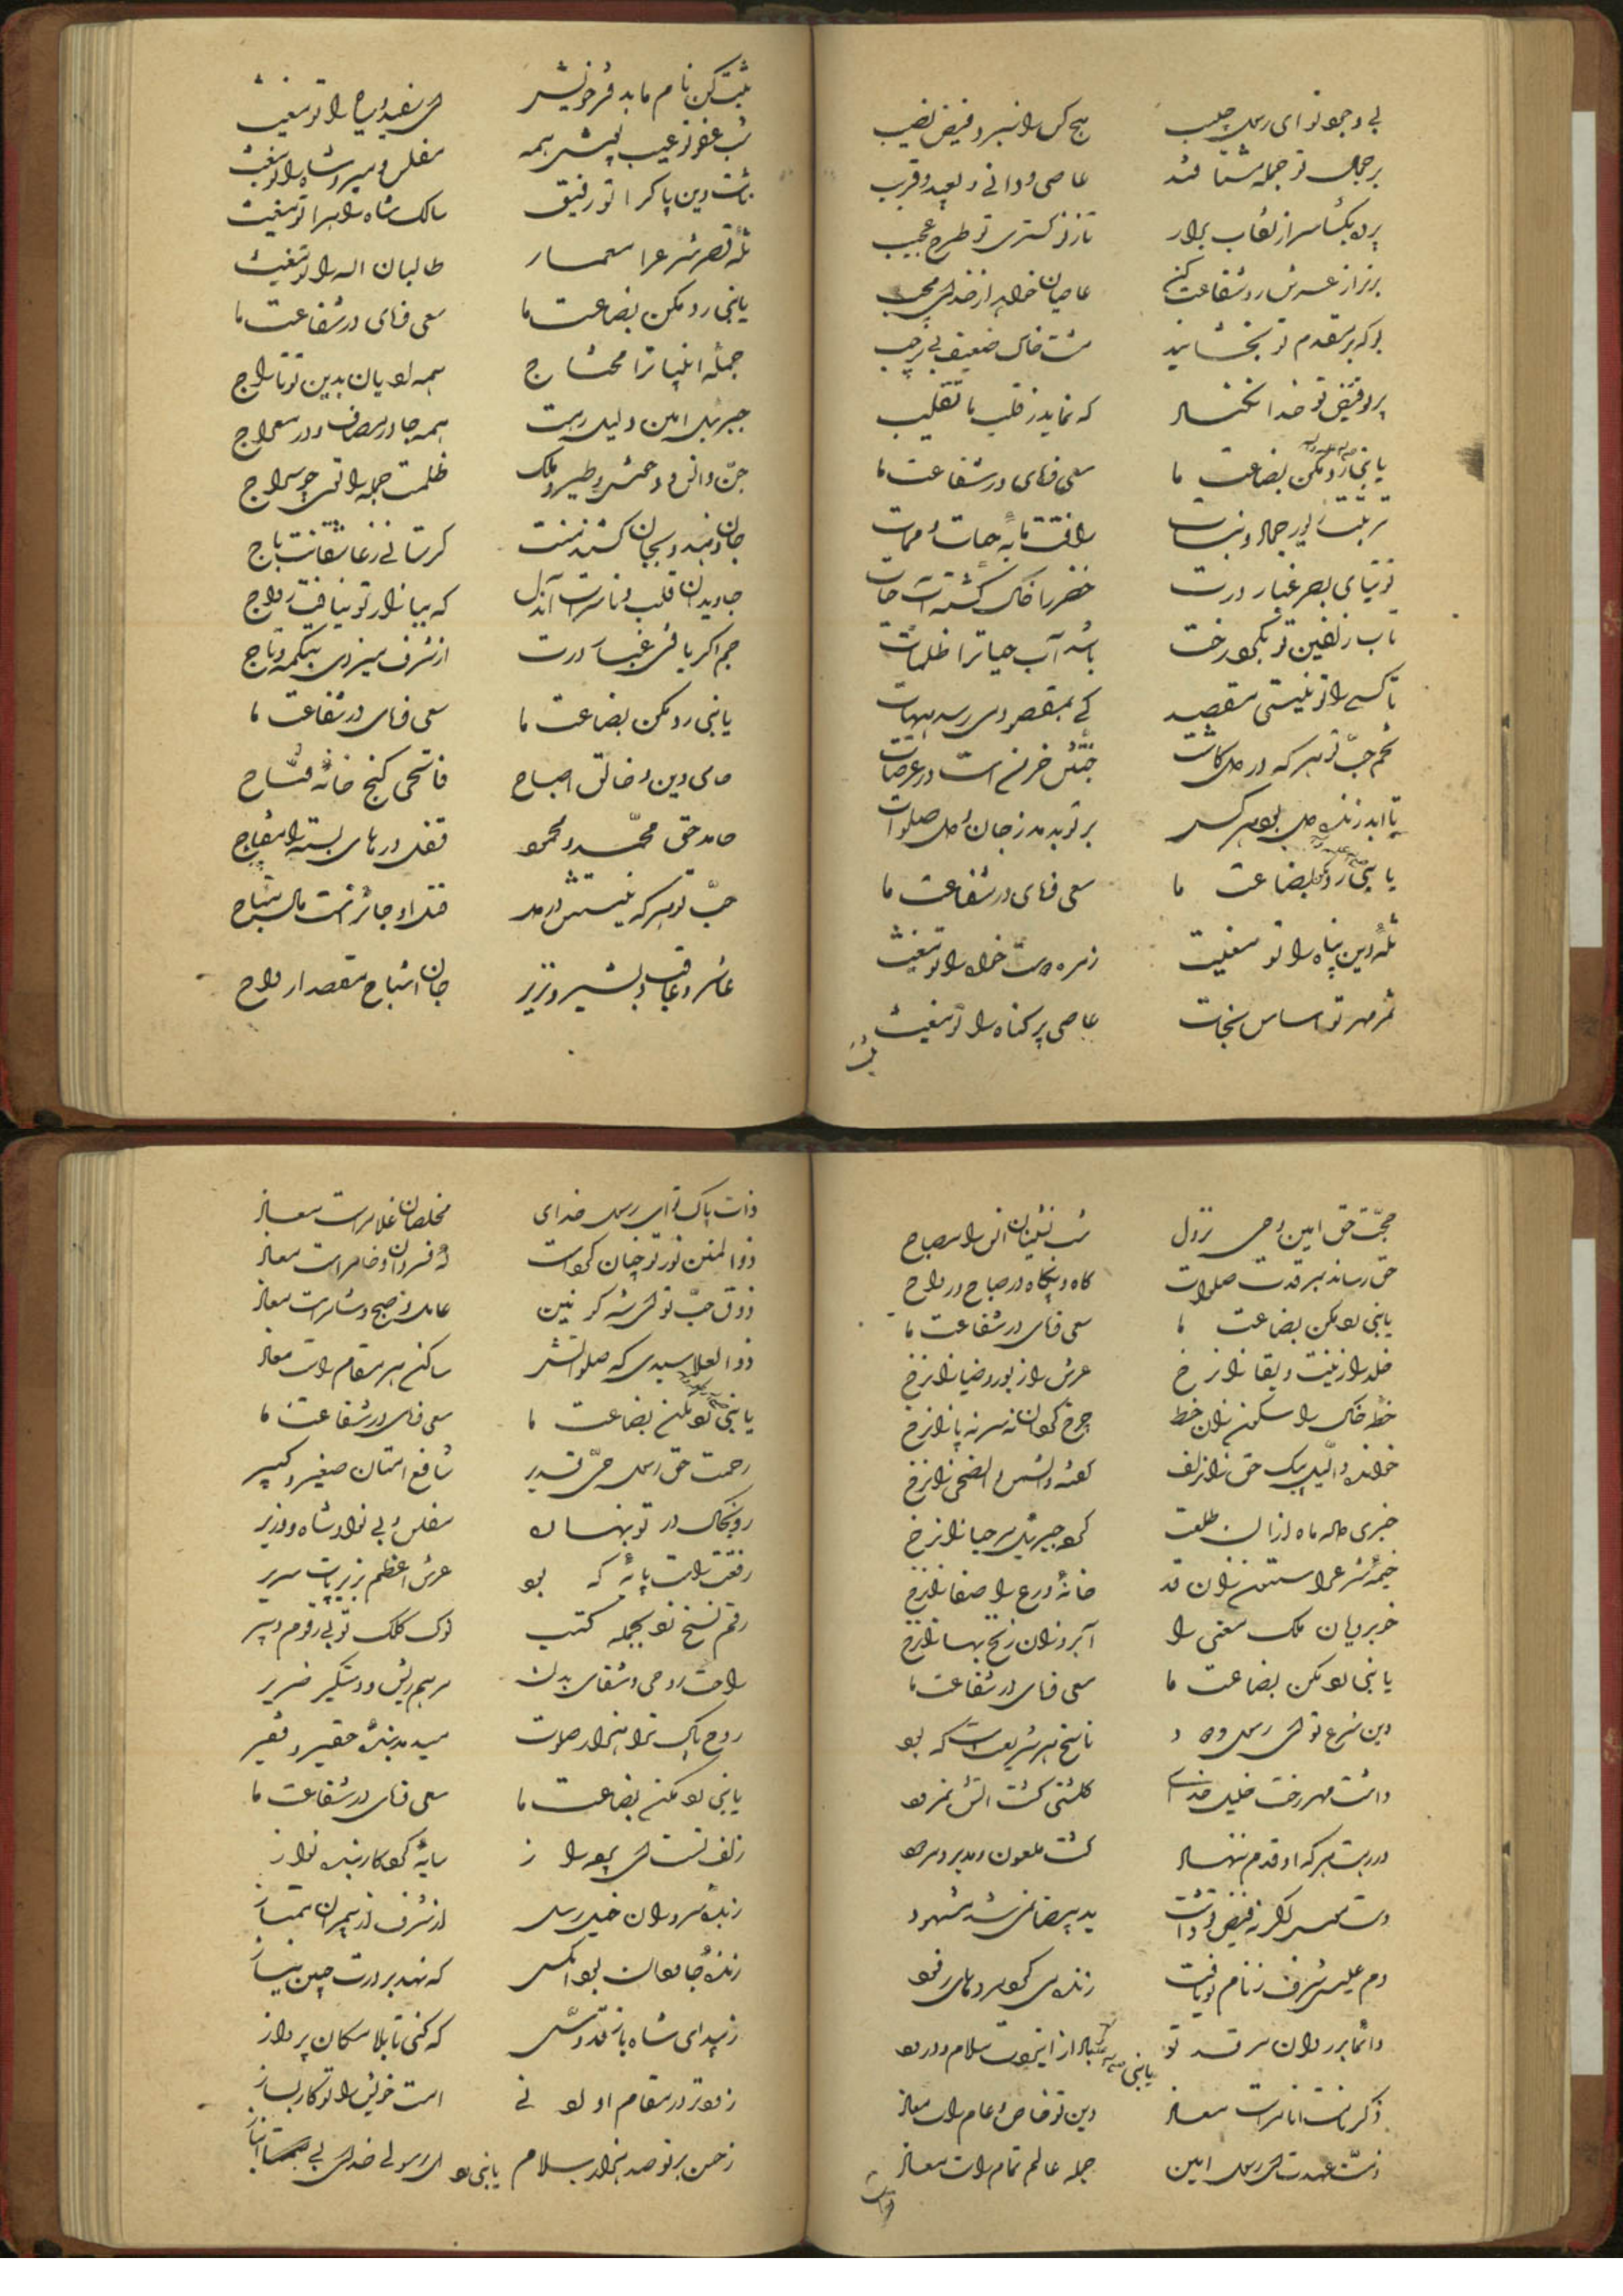 بی وجود تو ای رسول حبیب هیچ کس را نبرد فیض نصیب
بر جمال تو جمله مشتاقند عاصی و دانی و بعید و قریب
پرده بکشا سر از نقاب برآر تازه کستری تو طرح عجیب
برتر از عرش رو شفاعت کن عاصیان خواهد از خدای مجیب
بو که بر مقدم تو بخشایند مشت خاک ضعیف بی
پرتو فیض تو خدا نکند که نماید ز قلب ما تقلیب
یا نبی رد مکن بضاعت ما سعی فرمای در شفاعت ما
تربتت نور جمله
توتیای بصر غبار درت خضر را خاک کشته آب حیات
تاب زلفین تو بکرد رخت باشد آب حیات را ظلمات
تا کسی را تو نیستی مقصد کی بمقصود می رسد هیهات
تخم حب تو هر که در دل کاشت جنتش خرمن است در عرصات
تا ابد زنده دل بود هر کس بر تو بدمد ز جان و دل صلوات
یا نبی رد مکن بضاعت ما سعی فرمای در شفاعت ما
ثلهٔ دین پناه را تو مغیث زمره دوست خواه را تو مغیث
ثمر مهر تو اساس نجات عاصی پر کناه را تو مغیث
ثبت کن نام ما بدفتر خویش ای سفید و سیاه را تو مغیث
ثب عفو تو عیب پوش همه مفلس و میر و شاه را تو مغیث
ثابت دین پاک را تو رفیق سالک شاه راه را تو مغیث
ثلهٔ قصر شرع را معمار طالبان اله را تو مغیث
یا نبی رد مکن بضاعت ما سعی فرمای در شفاعت ما
جملهٔ انبیا ترا محتاج همه ادیان بدین تو تاراج
جبرئیل امین دلیل رهت همه جا در مصاف و در معراج
جن و انس و وحش و طیر و ملک ظلمت جمله را توئی چو سراج
جان دهند و بجان کشند منت کر ستانی ز عاشقانت باج
جاویدان قلب و ناسره است آندل که ببازار تو نیافت رواج
جم اکر یافتی غبار درت از شرف میزدی بتکمه و تاج
یا نبی رد مکن بضاعت ما سعی فرمای در شفاعت ما
حامی دین و خالق اصباح فاتحی کنج خانهٔ فتاح
حامد حق محمد و محمود قفل درهای بسته را مفتاح
حب تو هر که نیستش در دل قتل او جائز است و مالش مباح
حاشر و عاقب و بشیر و نذیر جان اشباح مقصد ارواح
حجت حق امین وحی نزول شب نشینان انس را مصباح
حق رساند بمرقدت صلوات کاه و بیکاه در صباح و رواح
یا نبی رد مکن بضاعت ما سعی فرمای در شفاعت ما
خلد را زینت و بقا زان رخ عرش را نور و ضیا زان رخ
خط خاک را سکون زان خط چرخ کردان نه سر نه پا زان رخ
خوانده واللیل پیک حق زان زلف گفته والشمس والضحی زان رخ
خبری داد ماه از آن طلعت کرد جبریل مرحبا زان رخ
خیمهٔ شرع را ستون زان قد خانهٔ ورع را صفا زان رخ
خوبرویان ملک معنی را آبرو زان زنخ بها زان رخ
یا نبی رد مکن بضاعت ما سعی فرمای در شفاعت ما
دین شرع تو ای رسول ودود ناسخ هر شریعت است که بود
داشت مهر رخت خلیل خدای کلشنی کشت آتش نمرود
در رهت هر که او قدم ننهاد کشت ملعون و مدبر و مردود
دست موسی اکر نه فیض تو داشت ید بیضا نمی شد مشهود
دم عیسی شرف ز نام تو یافت زنده می کرد مردهای رقود
دائما بر روان مرقد تو باد از ایزدت سلام و درود یا نبی
ذکر نامت انام راست معاذ دین تو خاص و عام راست معاذ
ذمت عهدت ای رسول امین جمله عالم تمام راست معاذ
ذات پاک تو ای رسول خدای مخلصان غلام راست معاذ
ذوالمنن نور تو چنان کرد است
ذوق حب تو ای شه کونین عامل صبح و شام راست معاذ
ذوالعلا سیدی که صلواتش ساکن هر مقام راست معاذ
یا نبی رد مکن بضاعت ما سعی فرمای در شفاعت ما
رحمت حق رسول حی قدیر شافع امتان صغیر و کبیر
رو بخاک در تو بنهاده مفلس و بی نوا و شاه و وزیر
رفعتت راست پایهٔ که بود عرش اعظم بزیر پات سریر
رقم نسخ زد بجمله کتب نوک کلک تو بی رقوم دبیر
راحت روحی و شفای بدن مرهم ریش و دستکیر ضریر
روح پاک ترا هزار صلوات سید بندهٔ حقیر و فقیر
یا نبی رد مکن بضاعت ما سعی فرمای در شفاعت ما
زلف تست ای سایهٔ کردکار بنده نواز
زبدهٔ سروران خیل رسل از شرف از پیمبران ممتاز
زندهٔ جاودان بود آنکس که نهد بر درت جبین نیاز
زیبد ای شاه باز قدوسی که کنی تا بلامکان پرواز
امت خویش را تو کار بساز
زمن بر تو صد هزار سلام ای رسولی خدای بی انباز یا نبی